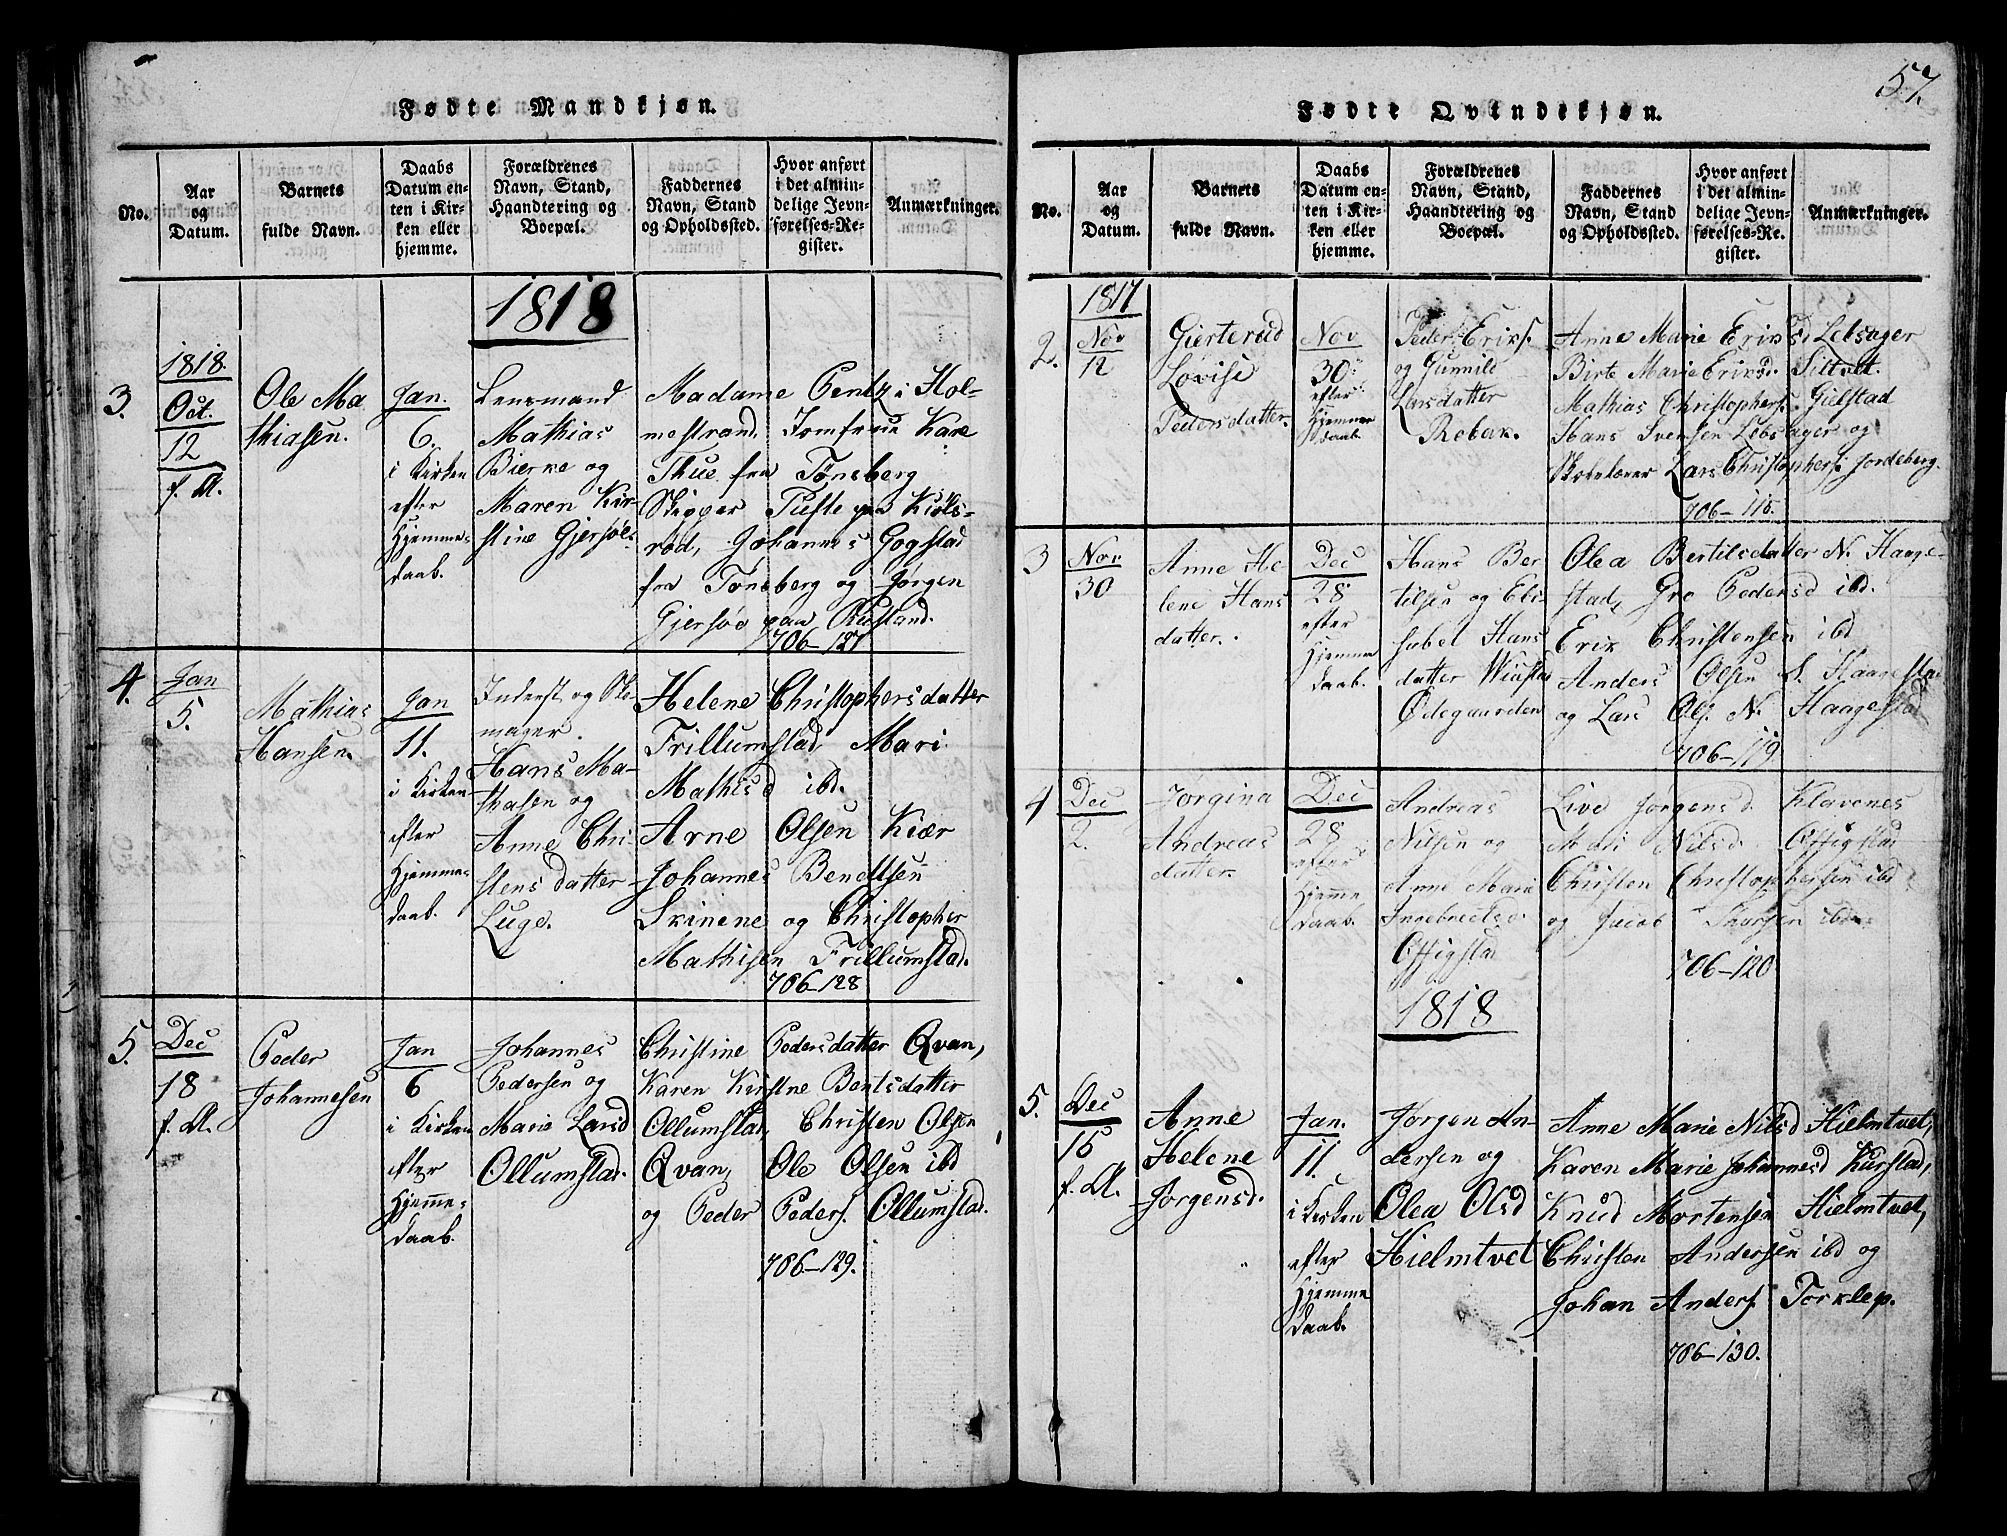 57.
Fødte Mandkjøn.
No.
Aar og Datum.
Barnets fulde Navn.
Daabs Datum enten i Kirken eller hjemme.
Forældrenes Navn, Stand, Haandtering og Boepæl.
Faddernes Navn, Stand og Opholdssted.
Hvor anført i det almindelige Jevnførelses-Register.
Anmærkninger.
1818
3.
1818.
Oct.
12
f. A.
Ole Ma
thiasen.
Jan.
6.
i Kirken
efter
Hjemme-
daab.
Lensmand
Mathias
Bierke og
Maren Kir-
stine Gjersøe.
Madame Pentz i Hol-
mestrand, Jomfrue Kare
Thue fra Tønsberg
Skipper Tufte paa Kiöls-
röd, Johannes Gogstad
fra Tönsberg og Jørgen
Gjersöe paa Rustand.
706-127
4.
Jan
5.
Mathias
Hansen.
Jan
11.
i Kirken
efter
Hjemme-
daab.
Inderst og Sko
mager.
Hans Ma-
thasen og
Anne Chri-
stens datter
Luge.
Helene Christophersdatter
Trillumstad, Mari
Mathisd ibd.
Arne Olsen Kiær
Johannes Bendtsen
Skinene og Christopher
Mathisen Trillumstad.
706-128
5.
Dec
18
f. A.
Peder
Johannesen
Jan
6
i Kirken
efter
Hjemme-
daab.
Johannes
Pedersen og
Marie Larsd
Ollumstad.
Christine Pedersdatter Qvan,
Karen Kirstne Bentsdatter
Ollumstad, Christen Olsen
Qvan, Ole Olsen ibd
og Peder Peders. Ollumstad.
706-129.
Fødte Qvindekjøn.
No.
Aar og Datum.
Barnets fulde Navn.
Daabs Datum enten i Kirken eller hjemme.
Forældrenes Navn, Stand, Haandtering og Boepæl.
Faddernes Navn, Stand og Opholdssted.
Hvor anført i det almindelige Jevnførelses-Register.
Anmærkninger.
2.
1817
Nov
12
Gierterud
Lovise
Pedersdatter.
Nov
30
efter
Hjemme
daab.
Peder Eriks.
og Gunnild
Larsdatter
Rebak.
Anne Marie Eriksd Lebsager
Birte Marie Eriksd. Siltvet.
Mathias Christophers. Gielstad
Hans Svensen Lebsager og
Skolelærer Lars Christophers. Jordeberg.
706-118.
3
Nov
30
Anne He
lene Hans
datter.
Dec
28
efter
Hjemme
daab.
Hans Ber
tilsen og Eli
sabet Hans
datter Wiustad
Ödegaarden
Olea Bertilsdatter N. Haage-
stad, Gro Pedersd ibd.
Erik Christensen ibd
Anders Olsen S. Haagestad
og Lars Ols. N. Haagestad
706-119
4
Dec
2.
Jorgina
Andreas
datter.
Dec
28
efter
Hjeme
daab.
Andreas
Nilsen og
Anne Marie
Ingebretsd.
Offigstad
Live Jorgensd. Klavenes
Mari Nilsd. Offigstad
Christen Christophersen ibd
og Jacob Thorsen ibd.
706-120
1818
5.
Dec
15
f. A.
Anne
Helene
Jorgensd.
Jan.
11.
i Kirken
efter
Hjemme
daab.
Jorgen An-
dersen og
Olea Olsd
Hielmtvet
Anne Marie Nilsd Hielmtvet,
Karen Marie Johannesd Kurstad,
Knud Mortensen Hielmtvet,
Christen Andersen ibd og
Johan Anders. Torklep.
706-130.